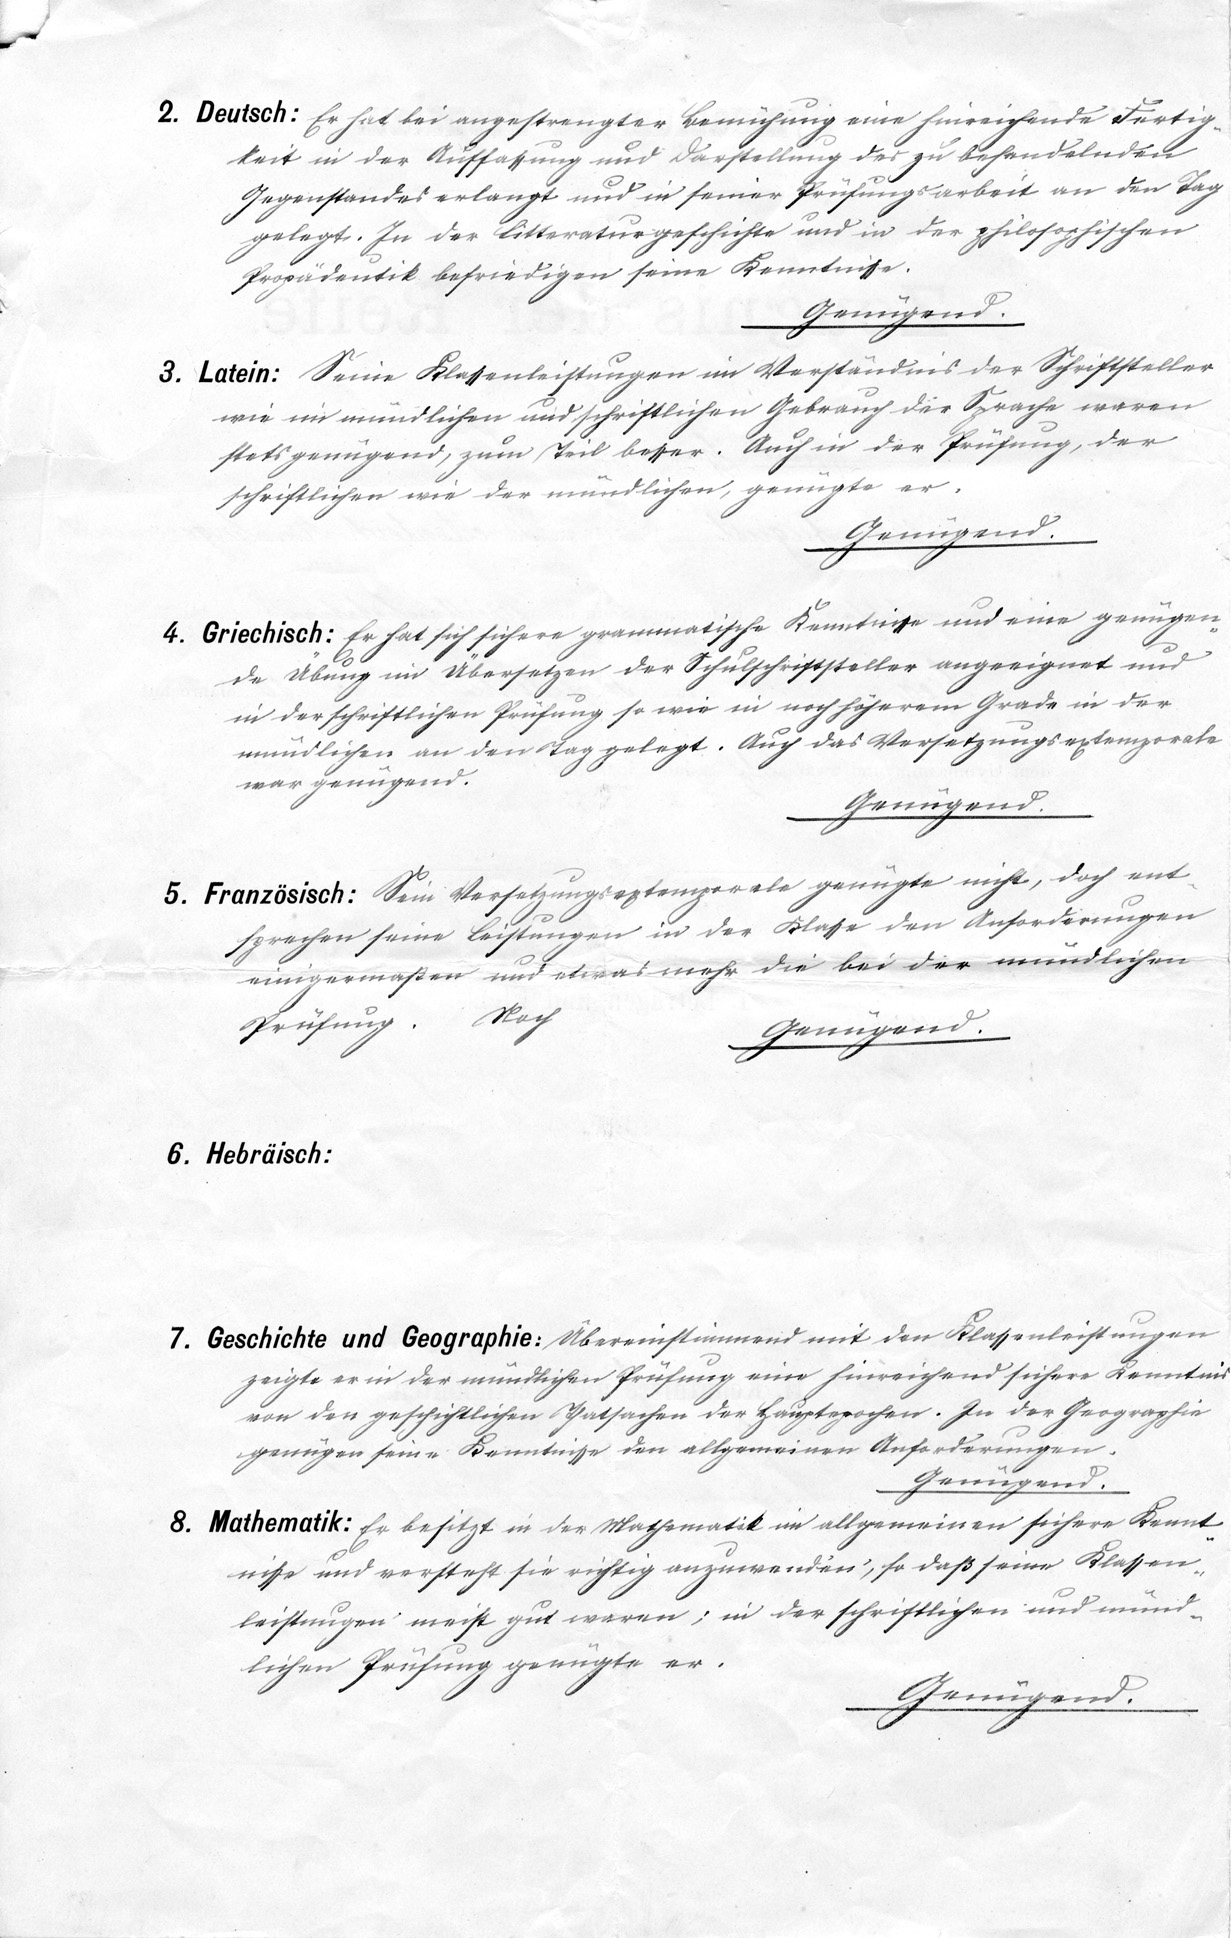 2. Deutsch: Er hat bei angestrengter Bemühung eine hinreichende Fertig-
keit in der Auffassung und Darstellung des zu behandelnden
Gegenstandes erlangt und in seiner Prüfungsarbeit an den Tag
gelegt. In der Litteraturgeschichte und in der philosophischen
Propädeutik befriedigen seine Kenntnisse.
Genügend.
3. Latein: Seine Klassenleistungen im Verständnis der Schriftsteller
wie im mündlichen und schriftlichen Gebrauch der Sprache waren
stets genügend, zum Teil besser. Auch in der Prüfung, der
schriftlichen wie der mündlichen, genügte er.
Genügend.
4. Griechisch: Er hat sich sichere grammatische Kenntnisse und eine genügen-
de Übung im Übersetzen der Schulschriftsteller angeeignet und
in der schriftlichen Prüfung so wie in noch höherem Grade in der
mündlichen an den Tag gelegt. Auch das Versetzungsextemporale
war genügend.
Genügend.
5. Französisch: Sein Versetzungsextemporale genügte nicht, doch ent-
sprechen seine Leistungen in der Klasse den Anforderungen
einigermaßen und etwas mehr die bei der mündlichen
Prüfung. Noch Genügend.
6. Hebräisch:
7. Geschichte und Geographie: Übereinstimmend mit den Klassenleistungen
zeigte er in der mündlichen Prüfung eine hinreichend sichere Kenntnis
von den geschichtlichen Thatsachen der Hauptepochen. In der Geographie
genügen seine Kenntnisse den allgemeinen Anforderungen.
Genügend.
8. Mathematik: Er besitzt in der Mathematik im allgemeinen sichere Kennt-
nisse und versteht sie richtig anzuwenden, so daß seine Klassen-
leistungen meist gut waren; in der schriftlichen und münd-
lichen Prüfung genügte er.
Genügend.